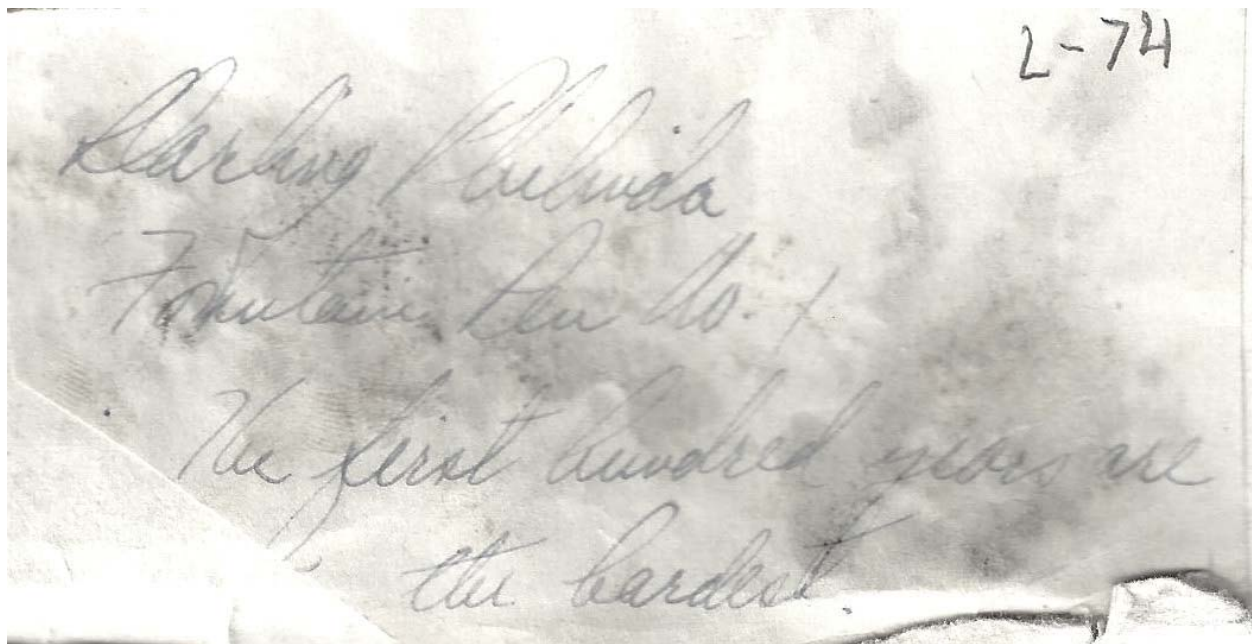 L-74
Darling Philinda
Fountain Pen No. 1
The first hundred years are
the hardest